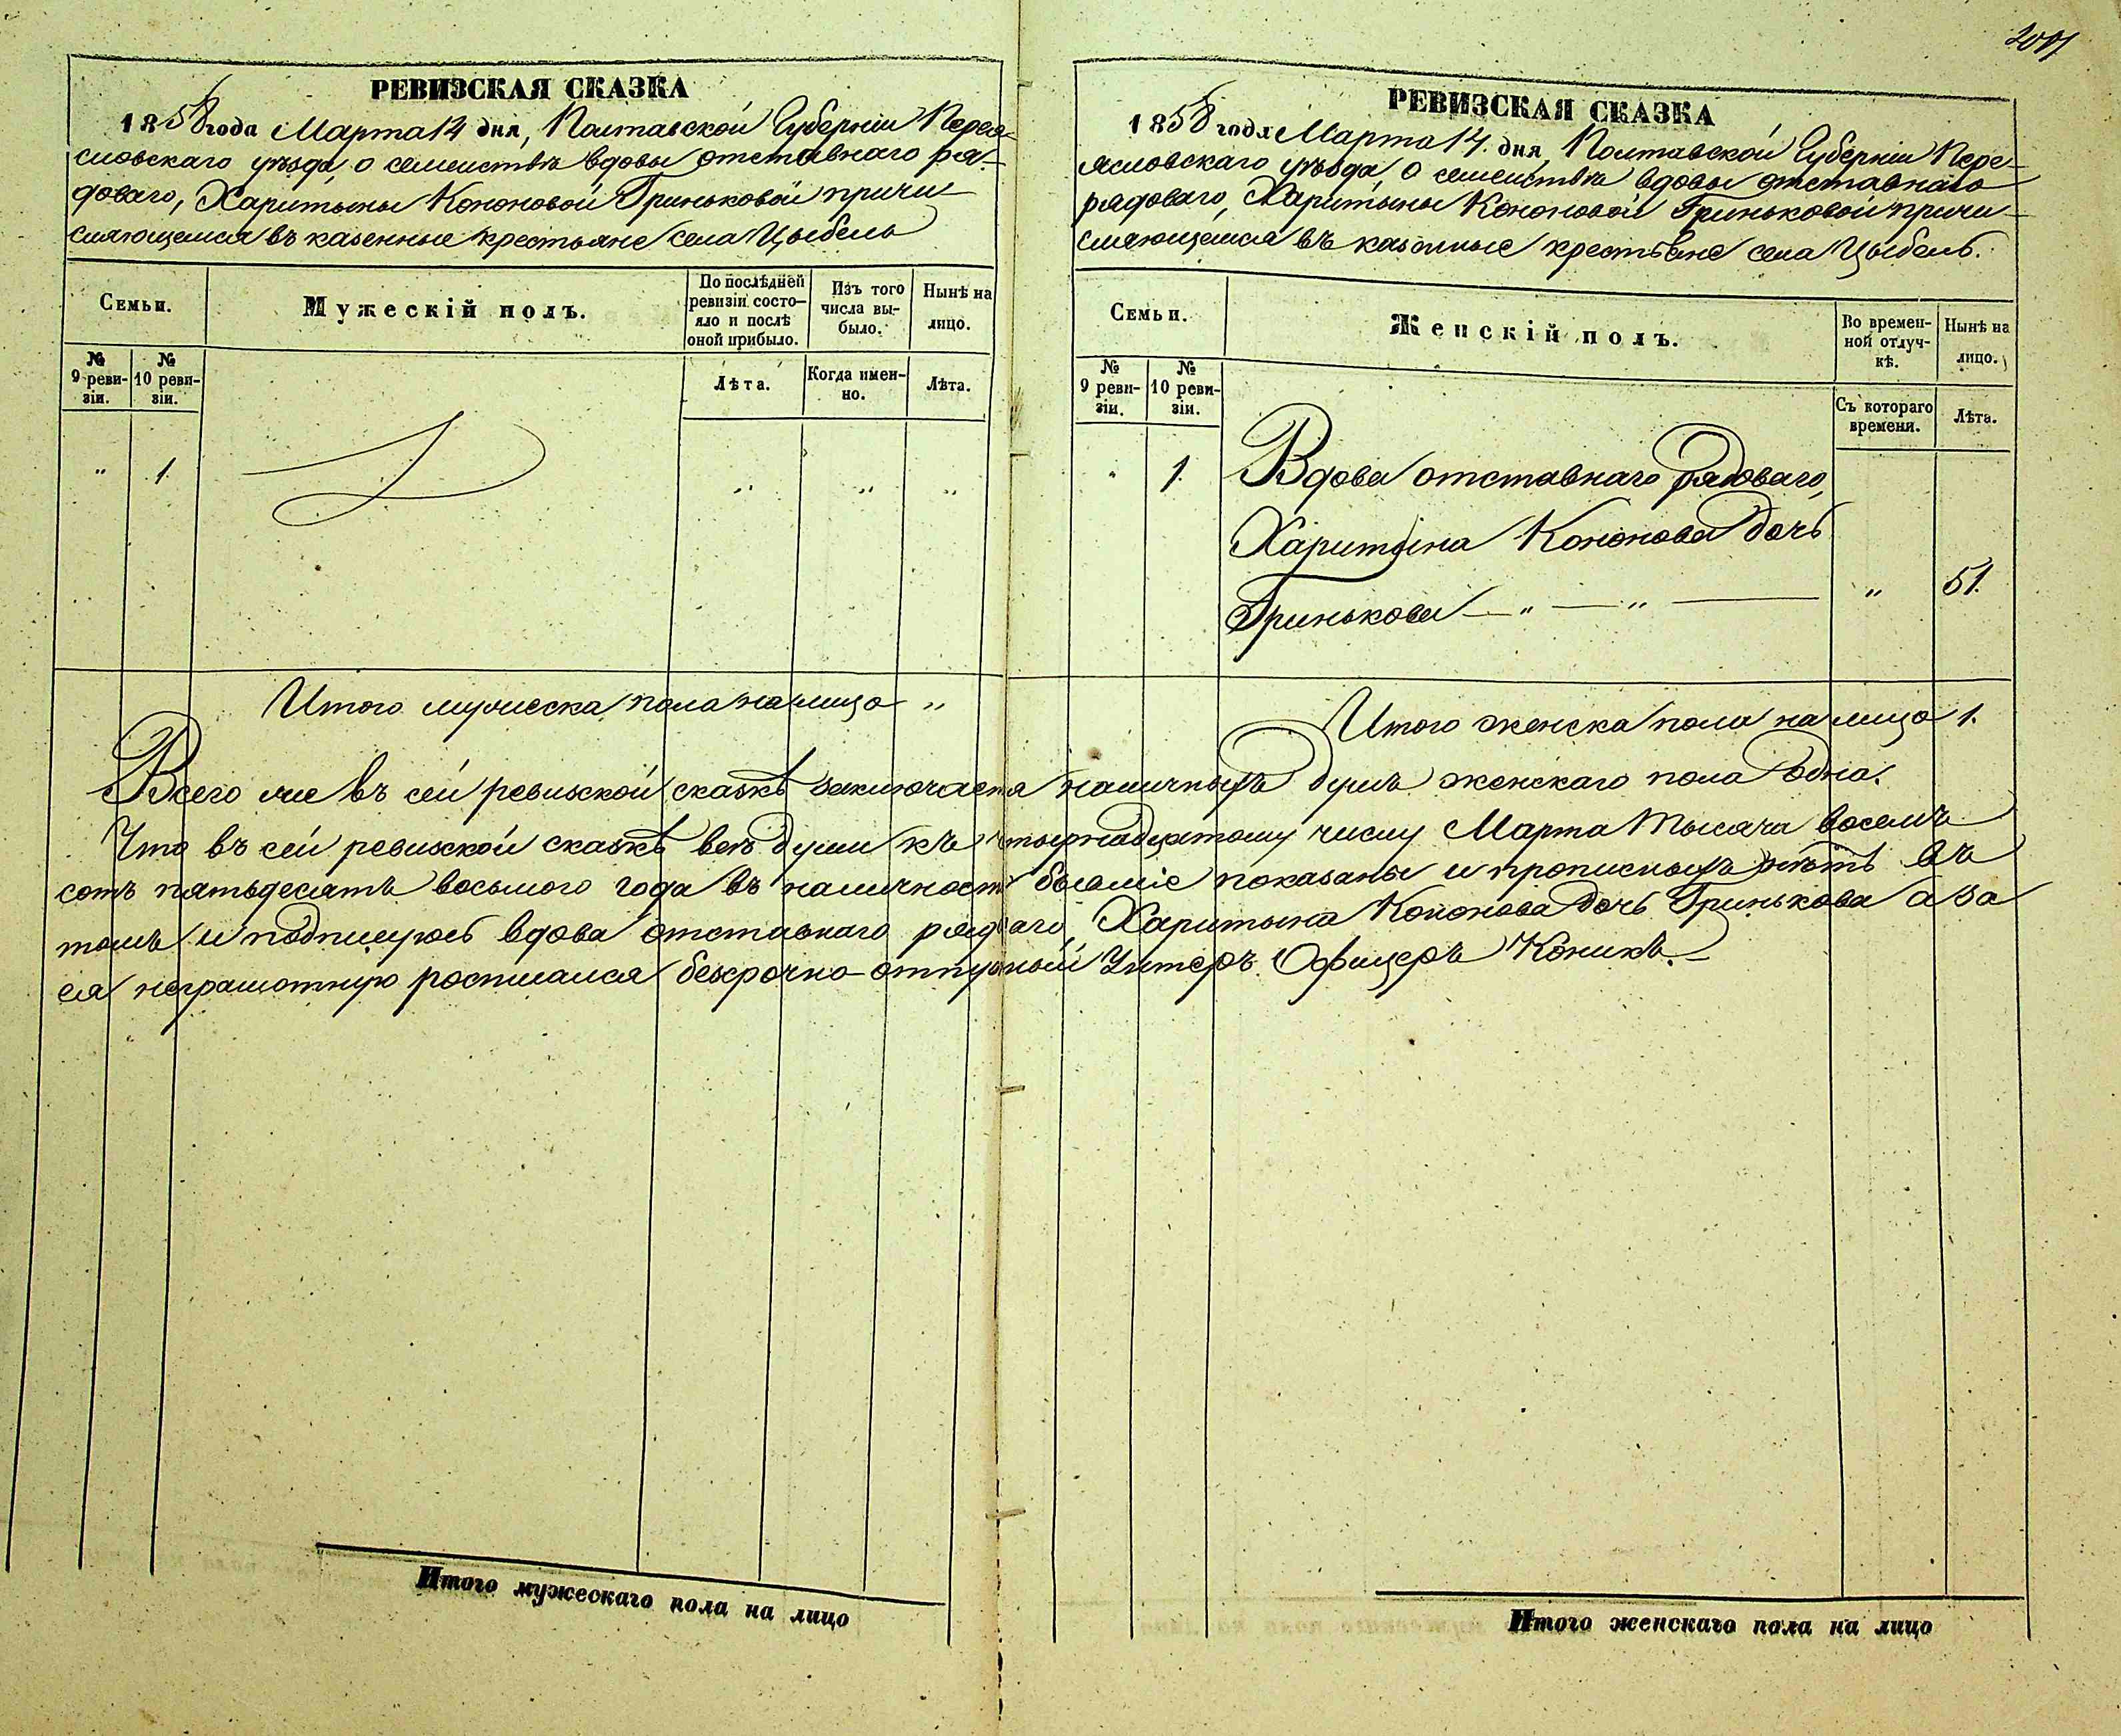 РЕВИЗСКАЯ СКАЗКА
1858 года Марта 14 дня, Полтавской Губерніи Перея-
словскаго уѣзда, о семействѣ вдовы отставнаго ря-
доваго, Харитыны Кононовой Гриньковой причи-
сляющемся въ казенные крестьяне села Цыбель
Семьи.
Мужескій полъ.
По послѣдней ревизіи состо-
яло и послѣ оной прибыло.
Изъ того числа вы-
было.
Нынѣ на лицо.
№ 9 реви-
зіи.
№ 10 реви-
зіи.
Лѣта.
Когда имен-
но.
Лѣта.
" 1. " " "
Итого мужеска пола на лицо "
РЕВИЗСКАЯ СКАЗКА
1858 года Марта 14. дня, Полтавской Губерніи Пере-
ясловскаго уѣзда о семействѣ вдовы отставнаго
рядоваго, Харитыны Кононовой Гриньковой причи-
сляющемся въ казенные крестьяне села Цыбель.
Семьи.
Женскій полъ.
Во времен-
ной отлуч-
кѣ.
Нынѣ на лицо.
№ 9 реви-
зіи.
№ 10 реви-
зіи.
Съ котораго времени.
Лѣта.
" 1. Вдова отставнаго рядоваго,
Харитына Кононова дочь
Гринькова — " — " — " 51.
Итого женска пола на лицо 1.
Всего же въ сей ревизской сказкѣ заключается наличныхъ душъ женскаго пола одна.
Что въ сей ревизской сказкѣ всѣ души къ четырнадцатому числу Марта тысяча восемъ
сотъ пятьдесятъ восьмого года въ наличности бывшіе показаны и прописныхъ нѣтъ въ
томъ и подписуюсь вдова отставнаго рядоваго, Харитына Кононова дочь Гринькова а за
ея неграмотную росписался безсрочно-отпускный Унтеръ Офицеръ Коникъ.
Итого мужескаго пола на лицо
Итого женскаго пола на лицо